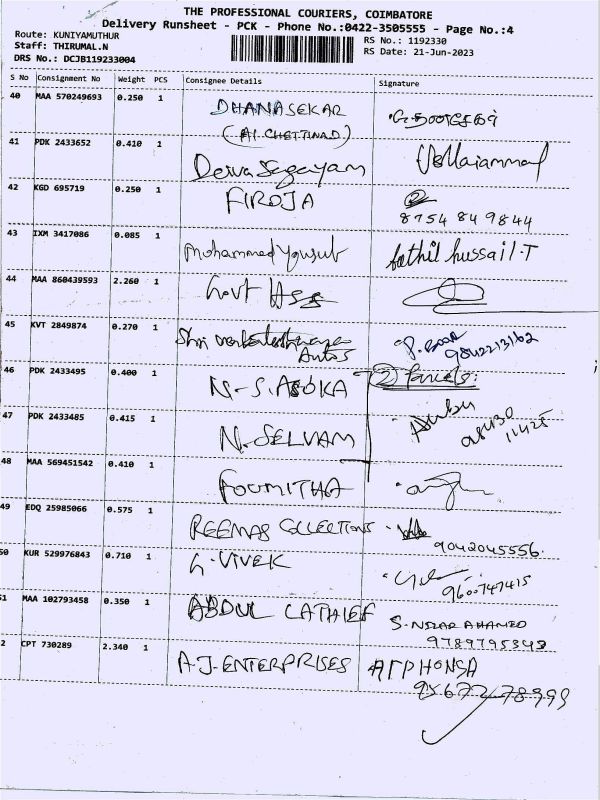 THE PROFESSIONAL COURIERS, COIMBATORE
Delivery Runsheet - PCK - Phone No.:0422-3505555 - Page No.:4
Route: KUNIYAMUTHUR
Staff: THIRUMAL.N
DRS No.: DCJB119233004
RS No.: 1192330
RS Date: 21-Jun-2023
S No Consignment No Weight PCS Consignee Details Signature
40 MAA 570249693 0.250 1 DHANASEKAR
(AI.CHETTINAD)
41 PDK 2433652 0.410 1
42 KGD 695719 0.250 1 FIROJA
8754 84 9844
43 IXM 3417086 0.085 1 Mohammed Yousub fathil hussail.T
44 MAA 860439593 2.260 1 Govt HSS
45 KVT 2849874 0.270 1 Shri
Autos 9842213162
46 PDK 2433495 0.400 1 N-S.ASOKA 2 Parcels:
47 PDK 2433485 0.415 1 N.SELVAM
48 MAA 569451542 0.410 1 FOUMITHA
49 EDQ 25985066 0.575 1 REEMAS COLLECTIONS
9042045556
50 KUR 529976843 0.710 1 G.VIVEK
9600747415
51 MAA 102793458 0.350 1 ABDUL LATHIEF S.NISAR AHAMED
9789795343
2 CPT 730289 2.340 1 A.J-ENTERPRISES ALPHONSA
95677 78999